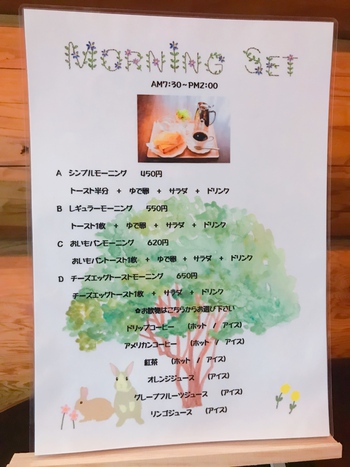 MORNING SET
AM7:30-PM2:00
A シンプルモーニング 450円
トースト半分 + ゆで卵 + サラダ + ドリンク
B レギュラーモーニング 550円
トースト1枚 + ゆで卵 + サラダ + ドリンク
C おいもパンモーニング 620円
おいもパントースト1枚 + ゆで卵 + サラダ + ドリンク
D チーズエッグトーストモーニング 650円
チーズエッグトースト1枚 + サラダ + ドリンク
☆お飲物はこちらからお選び下さい
ドリップコーヒー (ホット / アイス)
アメリカンコーヒー (ホット / アイス)
紅茶 (ホット / アイス)
オレンジジュース (アイス)
グレープフルーツジュース (アイス)
リンゴジュース (アイス)